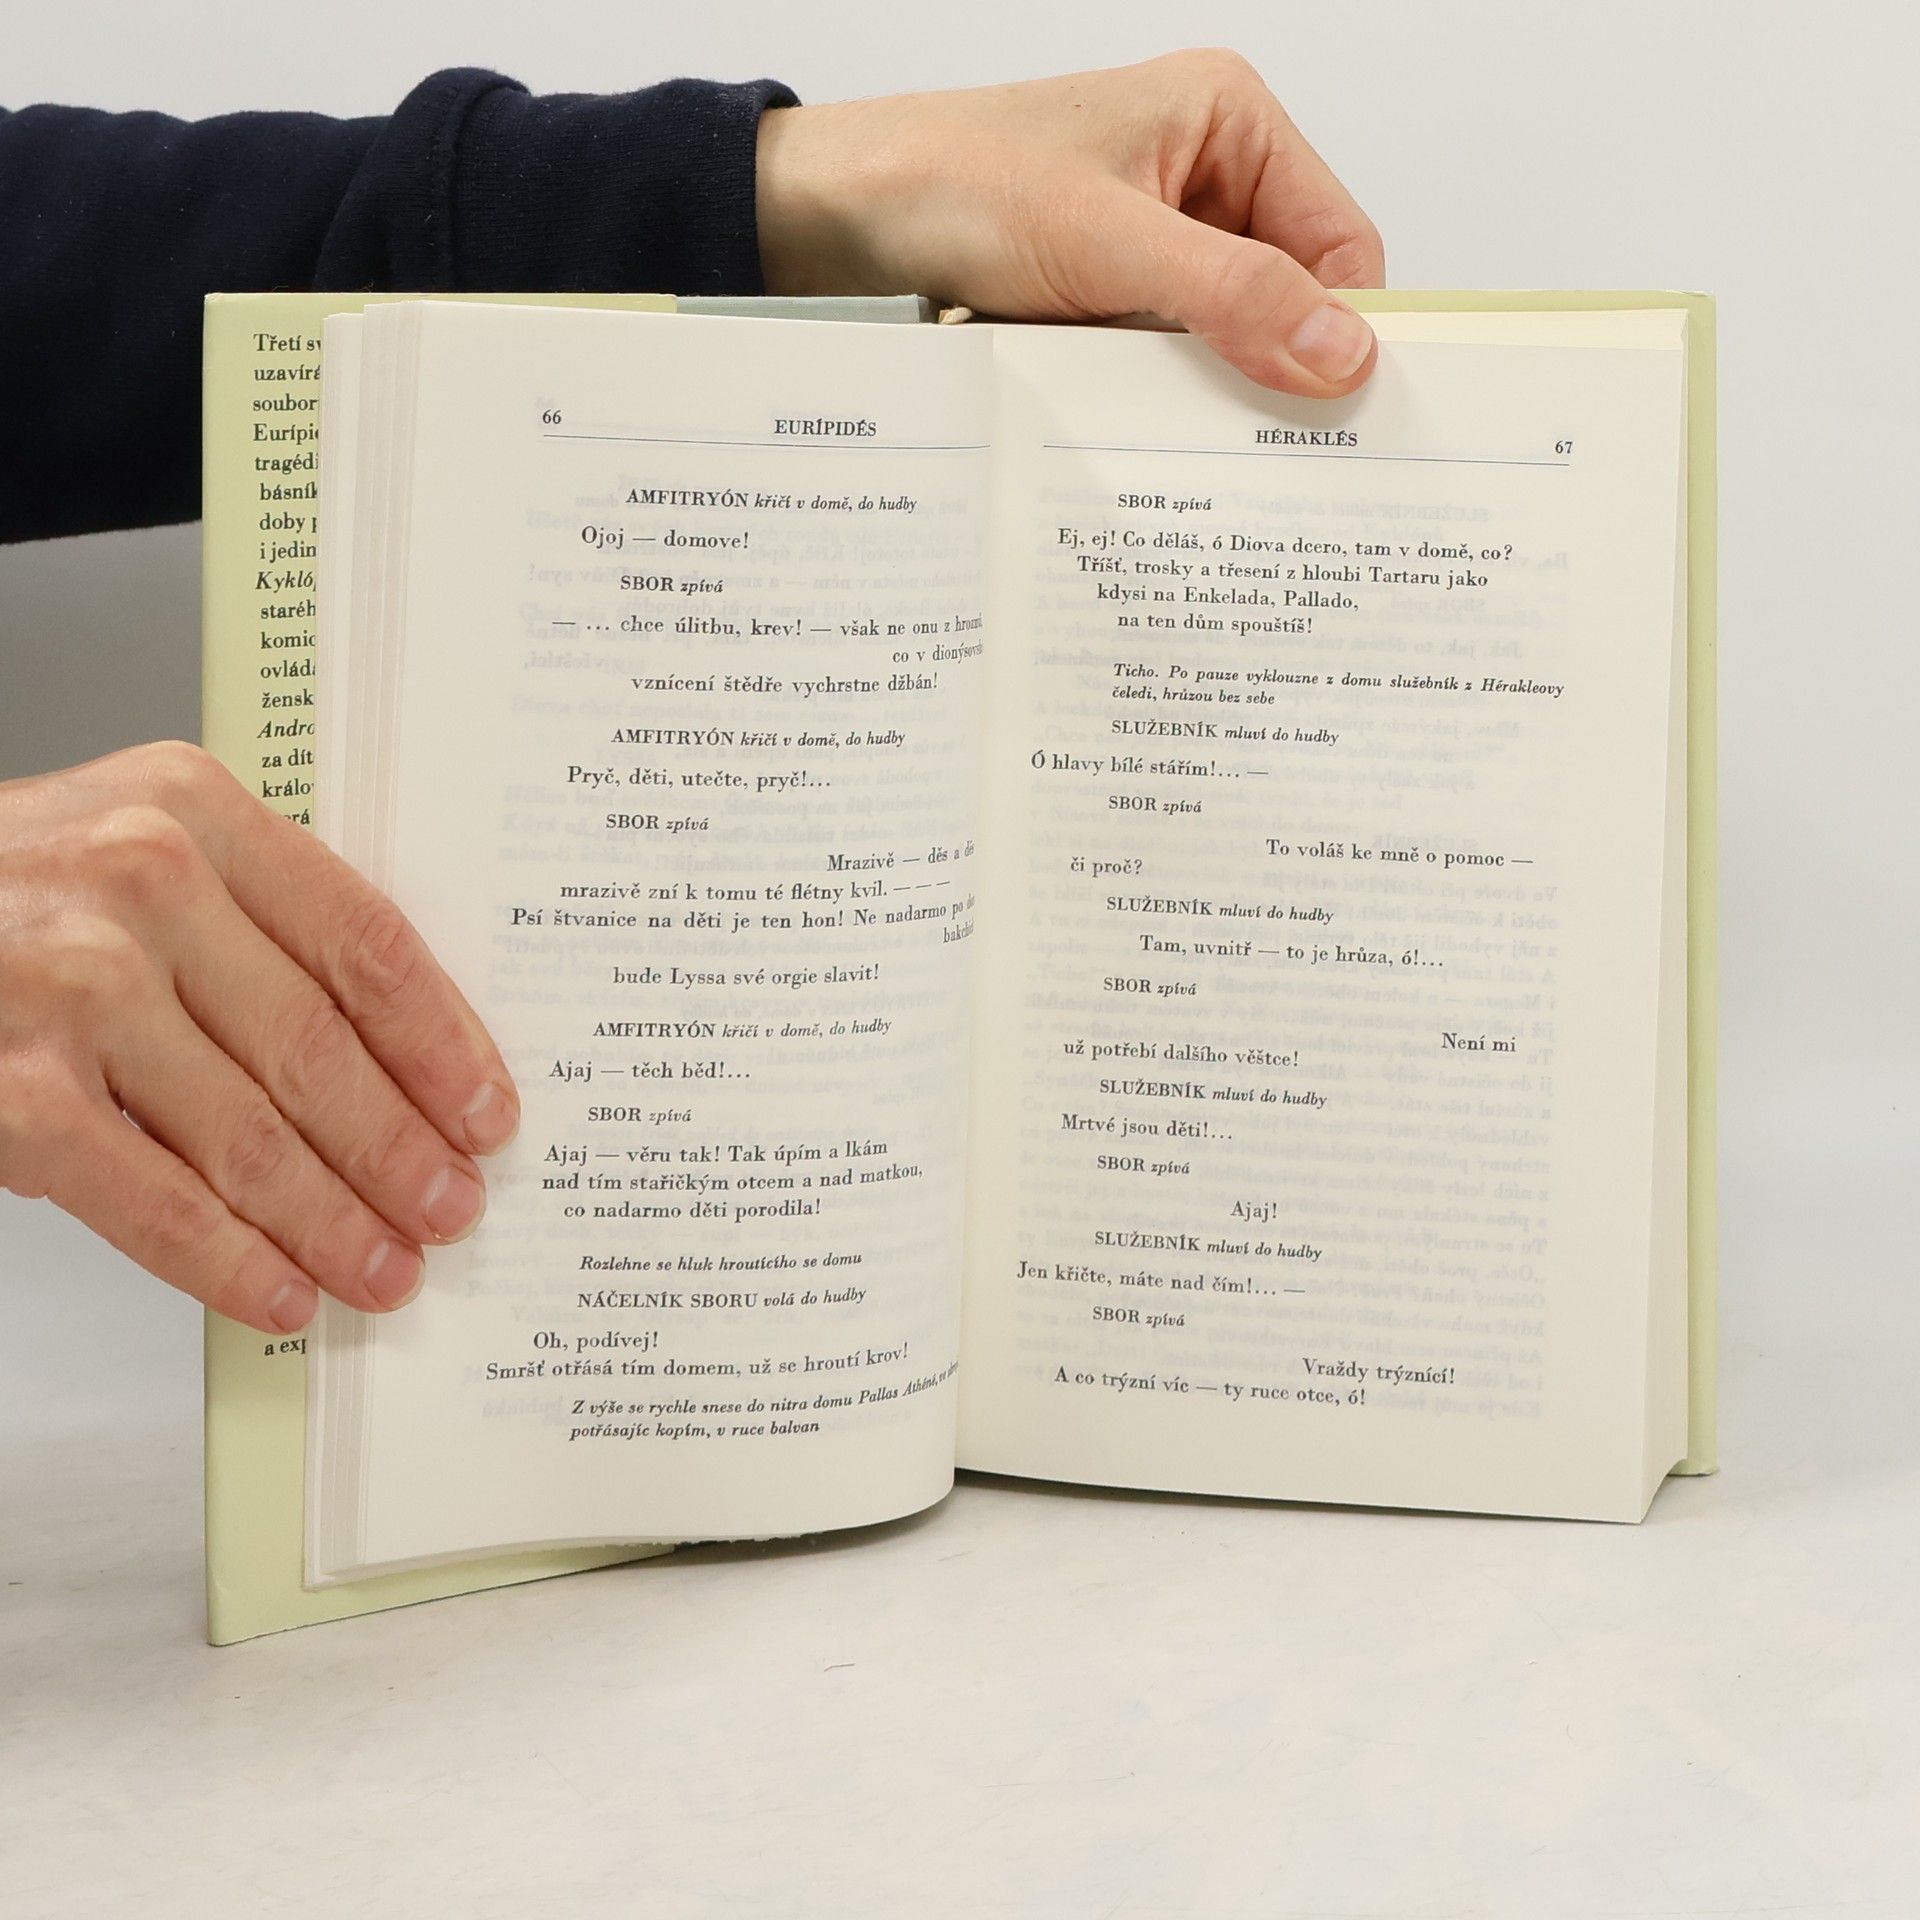 Třetí
uzavír
soubor
Eurípi
tragédi
básník
doby
i jedin
Kykló
staréh
komic
ovlád
žensk
Andro
za dít
králo
a exp
66
EURÍPIDÉS
AMFITRYÓN křičí v domě, do hudby
Ojoj — domove!
SBOR zpívá
— ... chce úlitbu, krev! — však ne onu z
co v
vznícení štědře vychrstne džbán!
AMFITRYÓN křičí v domě, do hudby
Pryč, děti, utečte, pryč!...
SBOR zpívá
Mrazivě — děs a
mrazivě zní k tomu té flétny kvil. — — —
Psí štvanice na děti je ten hon! Ne nadarmo po
bude Lyssa své orgie slavit!
AMFITRYÓN křičí v domě, do hudby
Ajaj — těch běd!...
SBOR zpívá
Ajaj — věru tak! Tak úpím a lkám
nad tím stařičkým otcem a nad matkou,
co nadarmo děti porodila!
Rozlehne se hluk hroutícího se domu
NÁČELNÍK SBORU volá do hudby
Oh, podívej!
Smršť otřásá tím domem, už se hroutí krov!
Z výše se rychle snese do nitra domu Pallas Athéné,
potřásajíc kopím, v ruce balvan
HÉRAKLÉS
67
SBOR zpívá
Ej, ej! Co děláš, ó Diova dcero, tam v domě, co?
Tříšť, trosky a třesení z hloubi Tartaru jako
kdysi na Enkelada, Pallado,
na ten dům spouštíš!
Ticho. Po pauze vyklouzne z domu služebník z Hérakleovy
čeledi, hrůzou bez sebe
SLUŽEBNÍK mluví do hudby
Ó hlavy bílé stářím!... —
SBOR zpívá
To voláš ke mně o pomoc —
či proč?
SLUŽEBNÍK mluví do hudby
Tam, uvnitř — to je hrůza, ó!...
SBOR zpívá
Není mi
už potřebí dalšího věštce!
SLUŽEBNÍK mluví do hudby
Mrtvé jsou děti!...
SBOR zpívá
Ajaj!
SLUŽEBNÍK mluví do hudby
Jen křičte, máte nad čím!... —
SBOR zpívá
Vraždy trýznící!
A co trýzní víc — ty ruce otce, ó!